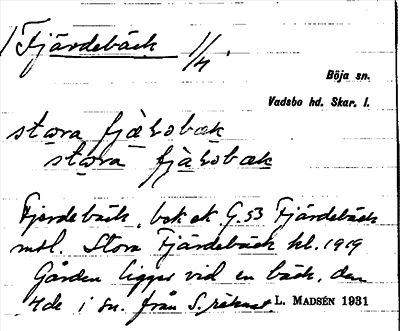 Fjärdebäck 1/4
Böja sn.
Vadsbo hd. Skar. l.
stora
stora
Fjerdebäck, bok ek G. 53 Fjärdebäck
mtl. Stora Fjärdebäck kl. 1919
Gården ligger vid en bäck, den
4de i sn. från S. räknat L. MADSÉN 1931